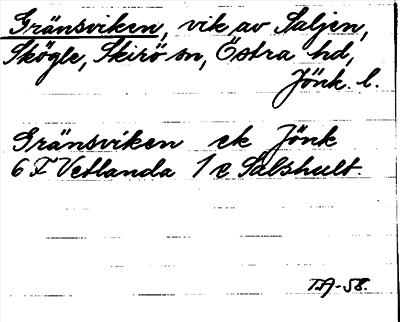 Gränsviken, vik av Saljen,
Skögle, Skirö sn, Östra hd,
Jönk. l.
Gränsviken ek Jönk
6 F Vetlanda 1 c Salshult.
T.A-58.